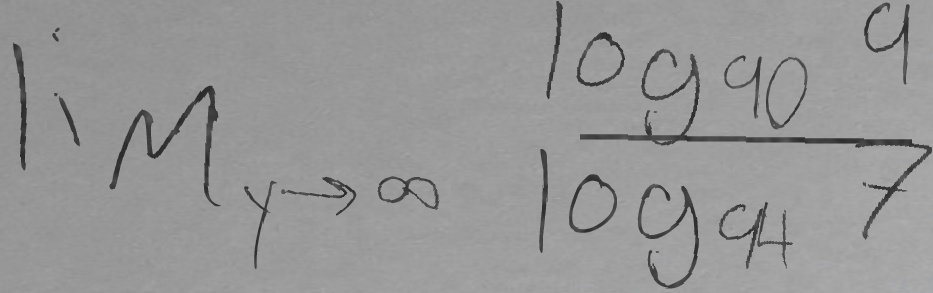 lim y→∞ log90 9
log94 7